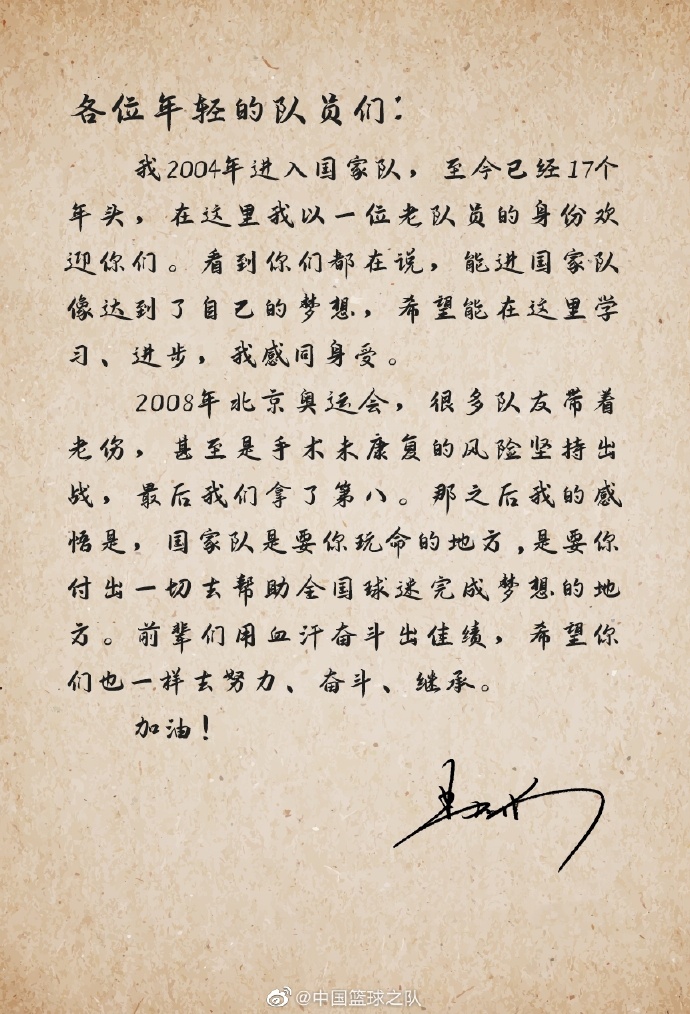 各位年轻的队员们：
我2004年进入国家队，至今已经17个
年头，在这里我以一位老队员的身份欢
迎你们。看到你们都在说，能进国家队
像达到了自己的梦想，希望能在这里学
习、进步，我感同身受。
2008年北京奥运会，很多队友带着
老伤，甚至是手术未康复的风险坚持出
战，最后我们拿了第八。那之后我的感
悟是，国家队是要你玩命的地方,是要你
付出一切去帮助全国球迷完成梦想的地
方。前辈们用血汗奋斗出佳绩，希望你
们也一样去努力、奋斗、继承。
加油！
@中国篮球之队